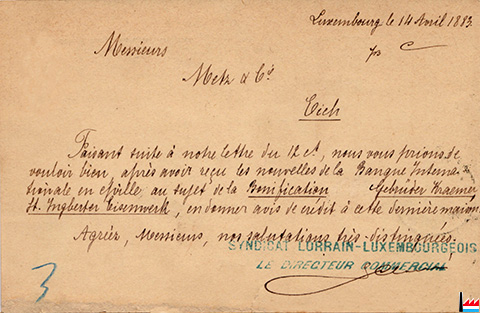 Luxembourg le 14 Avril 1883.
Messieurs
Metz & Cº
Eich
Faisant suite à notre lettre du 12 ct, nous vous prions de
vouloir bien, après avoir reçu les nouvelles de la Banque Interna-
tionale en Ville au sujet de la Bonification Gebrüder Kraemer
St. Ingberter Eisenwerk, en donner avis de crédit à cette dernière maison.
Agréez, Messieurs, nos salutations très-distinguées.
SYNDICAT LORRAIN-LUXEMBOURGEOIS
LE DIRECTEUR COMMERCIAL
3